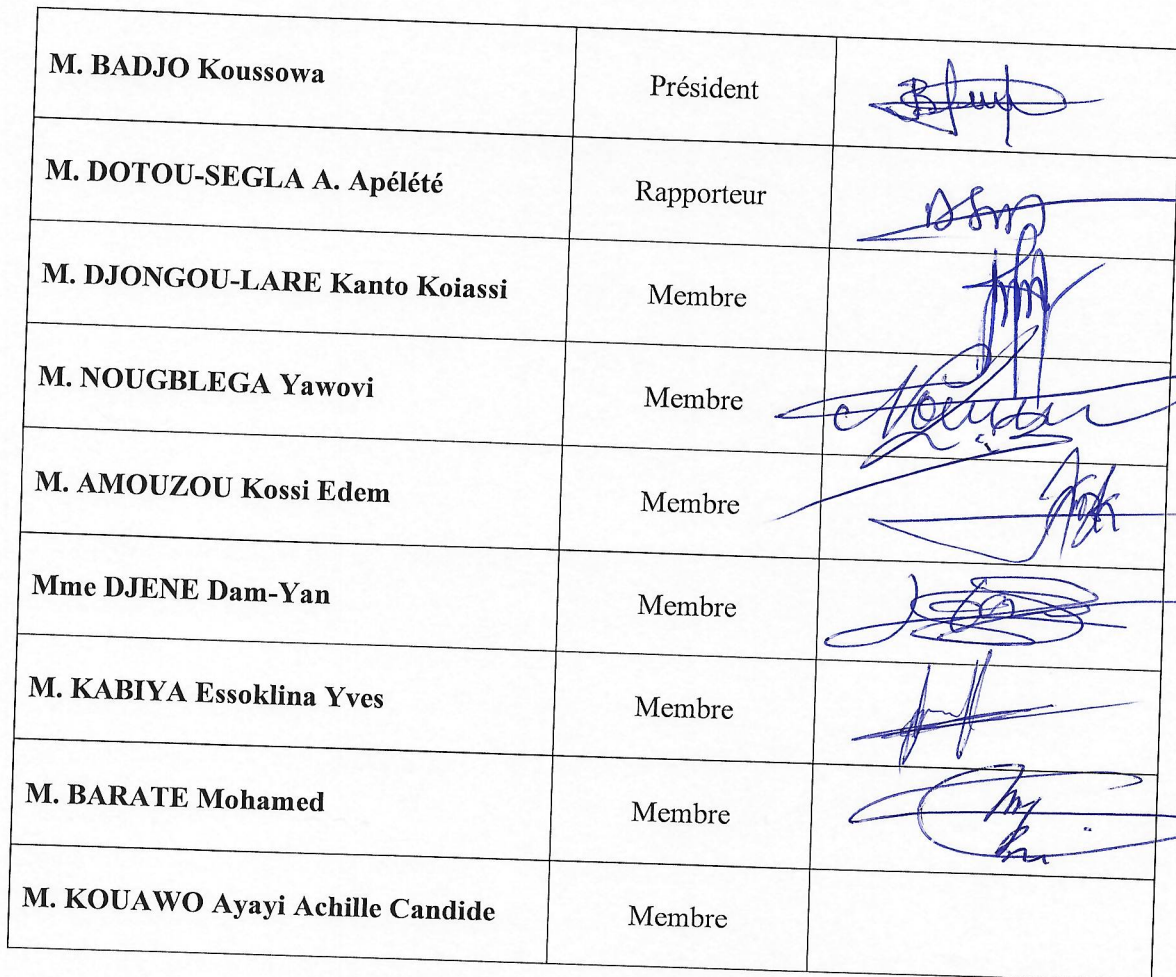 M. BADJO Koussowa Président
M. DOTOU-SEGLA A. Apélété Rapporteur
M. DJONGOU-LARE Kanto Koiassi Membre
M. NOUGBLEGA Yawovi Membre
M. AMOUZOU Kossi Edem Membre
Mme DJENE Dam-Yan Membre
M. KABIYA Essoklina Yves Membre
M. BARATE Mohamed Membre
M. KOUAWO Ayayi Achille Candide Membre